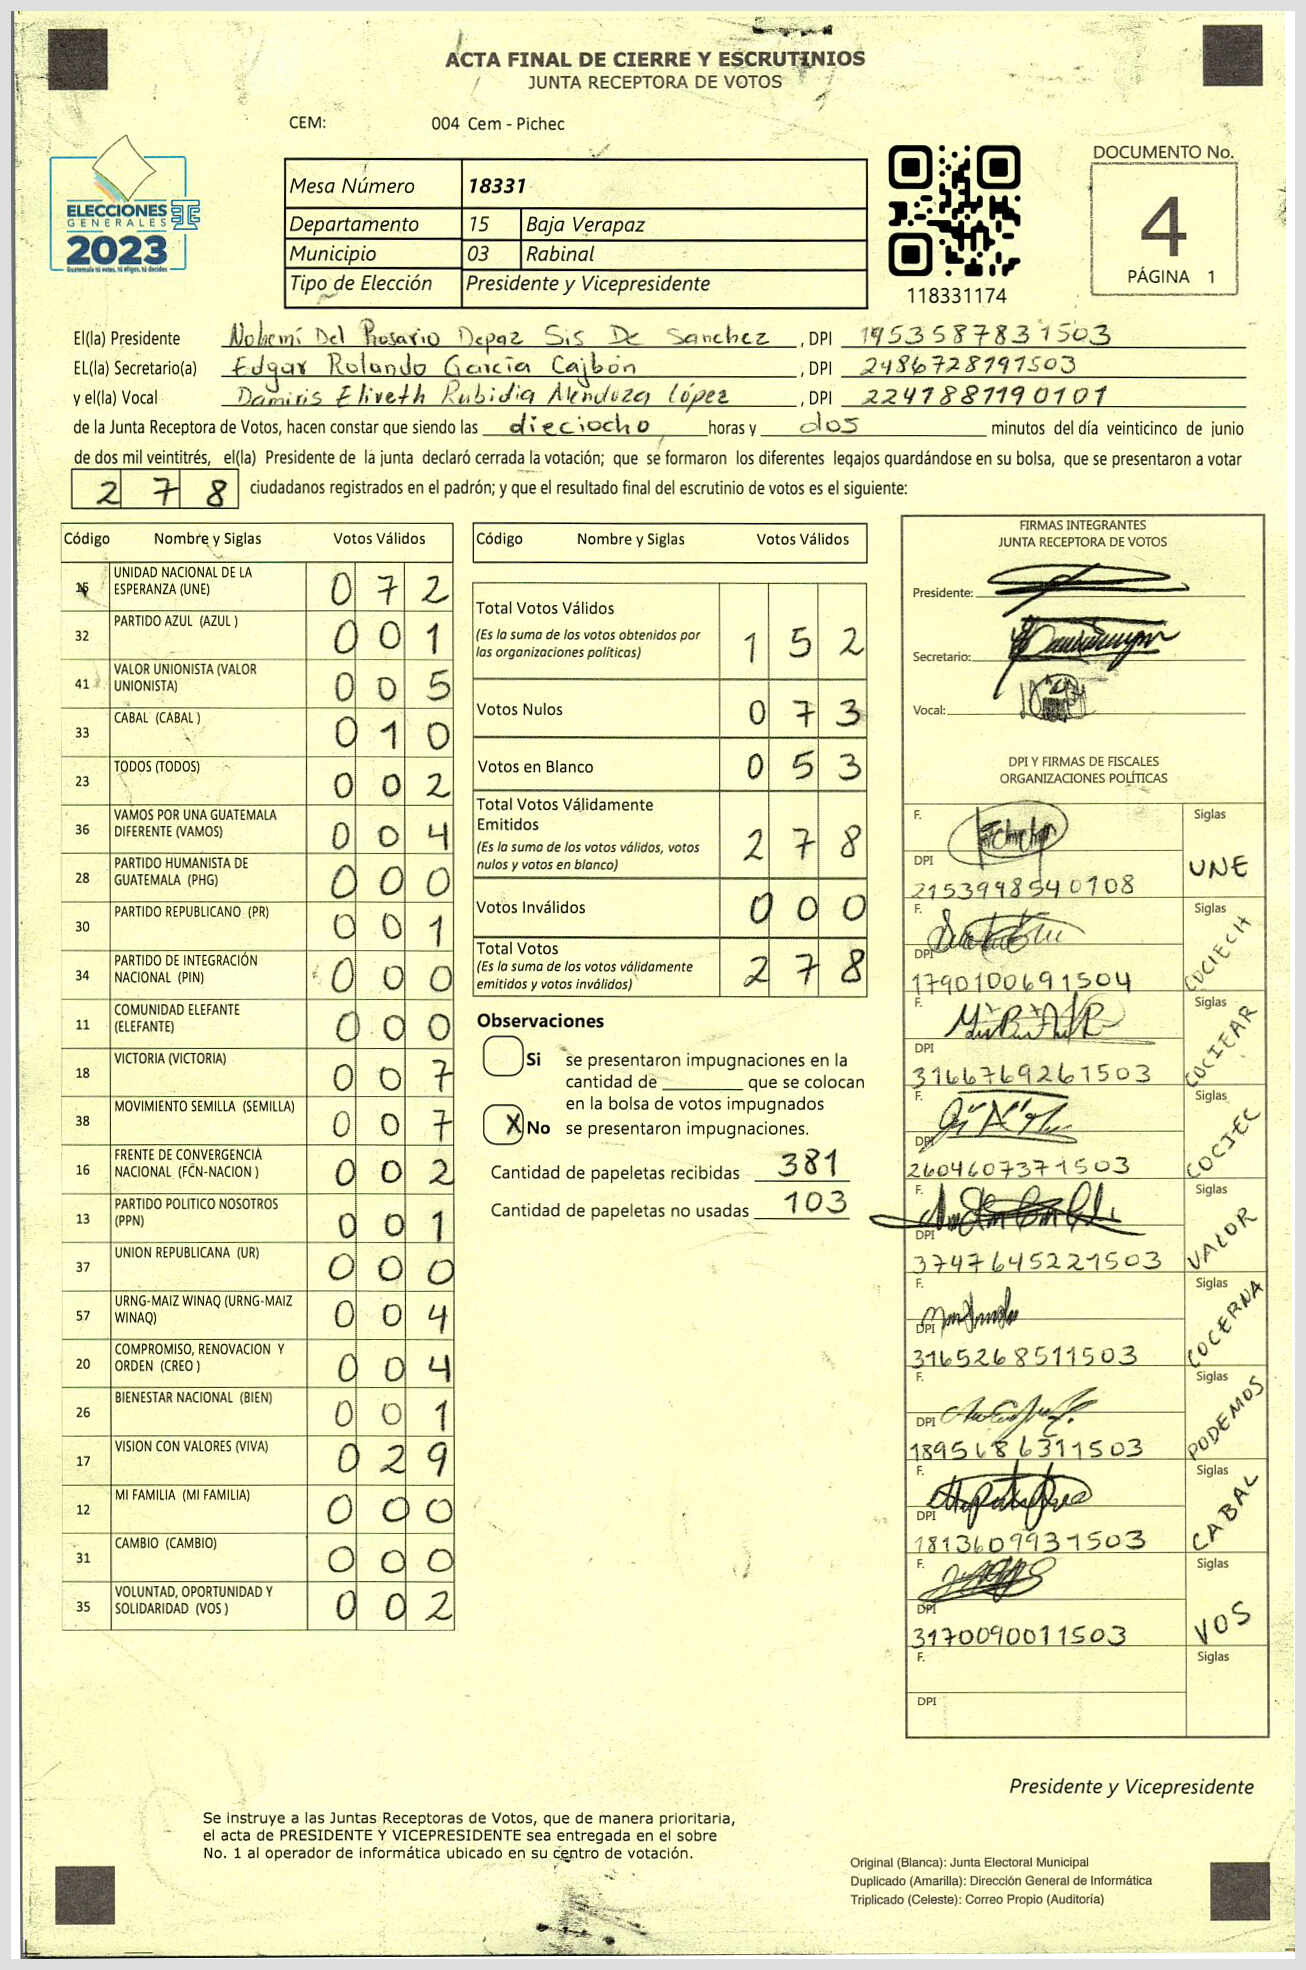 ACTA FINAL DE CIERRE Y ESCRUTINIOS
JUNTA RECEPTORA DE VOTOS
CEM: 004 Cem - Pichec
ELECCIONES
GENERALES
2023
Guatemala tú votas, tú eliges, tú decides
Mesa Número 18331
Departamento 15 Baja Verapaz
Municipio 03 Rabinal
Tipo de Elección Presidente y Vicepresidente
118331174
DOCUMENTO No.
4
PÁGINA 1
El(la) Presidente Nohemí Del Rosario Depaz Sis De Sanchez , DPI 1953587831503
EL(la) Secretario(a) Edgar Rolando García Cajbón , DPI 2486728191503
y el(la) Vocal Damiris Eliveth Rubidia Mendoza López , DPI 2247887190101
de la Junta Receptora de Votos, hacen constar que siendo las dieciocho horas y dos minutos del día veinticinco de junio
de dos mil veintitrés, el(la) Presidente de la junta declaró cerrada la votación; que se formaron los diferentes legajos guardándose en su bolsa, que se presentaron a votar
278 ciudadanos registrados en el padrón; y que el resultado final del escrutinio de votos es el siguiente:
Código Nombre y Siglas Votos Válidos
15 UNIDAD NACIONAL DE LA ESPERANZA (UNE) 072
32 PARTIDO AZUL (AZUL ) 001
41 VALOR UNIONISTA (VALOR UNIONISTA) 005
33 CABAL (CABAL ) 010
23 TODOS (TODOS) 002
36 VAMOS POR UNA GUATEMALA DIFERENTE (VAMOS) 004
28 PARTIDO HUMANISTA DE GUATEMALA (PHG) 000
30 PARTIDO REPUBLICANO (PR) 001
34 PARTIDO DE INTEGRACIÓN NACIONAL (PIN) 000
11 COMUNIDAD ELEFANTE (ELEFANTE) 000
18 VICTORIA (VICTORIA) 007
38 MOVIMIENTO SEMILLA (SEMILLA) 007
16 FRENTE DE CONVERGENCIA NACIONAL (FCN-NACION ) 002
13 PARTIDO POLITICO NOSOTROS (PPN) 001
37 UNION REPUBLICANA (UR) 000
57 URNG-MAIZ WINAQ (URNG-MAIZ WINAQ) 004
20 COMPROMISO, RENOVACION Y ORDEN (CREO ) 004
26 BIENESTAR NACIONAL (BIEN) 001
17 VISION CON VALORES (VIVA) 029
12 MI FAMILIA (MI FAMILIA) 000
31 CAMBIO (CAMBIO) 000
35 VOLUNTAD, OPORTUNIDAD Y SOLIDARIDAD (VOS ) 002
Código Nombre y Siglas Votos Válidos
Total Votos Válidos 152
(Es la suma de los votos obtenidos por
las organizaciones políticas)
Votos Nulos 073
Votos en Blanco 053
Total Votos Válidamente
Emitidos 278
(Es la suma de los votos válidos, votos
nulos y votos en blanco)
Votos Inválidos 000
Total Votos 278
(Es la suma de los votos válidamente
emitidos y votos inválidos)
Observaciones
Si se presentaron impugnaciones en la
cantidad de ________ que se colocan
en la bolsa de votos impugnados
X No se presentaron impugnaciones.
Cantidad de papeletas recibidas 381
Cantidad de papeletas no usadas 103
FIRMAS INTEGRANTES
JUNTA RECEPTORA DE VOTOS
Presidente:
Secretario:
Vocal:
DPI Y FIRMAS DE FISCALES
ORGANIZACIONES POLÍTICAS
F. Siglas
DPI UNE
2153998540108
F. Siglas
DPI COCIECH
1790100691504
F. Siglas
DPI COCIEAR
3166769261503
F. Siglas
DPI COCIEC
2604607371503
F. Siglas
DPI VALOR
3747645221503
F. Siglas
DPI COCERNA
3165268511503
F. Siglas
DPI PODEMOS
1895686311503
F. Siglas
DPI CABAL
1813609931503
F. Siglas
DPI VOS
3170090011503
F. Siglas
DPI
Presidente y Vicepresidente
Se instruye a las Juntas Receptoras de Votos, que de manera prioritaria,
el acta de PRESIDENTE Y VICEPRESIDENTE sea entregada en el sobre
No. 1 al operador de informática ubicado en su centro de votación.
Original (Blanca): Junta Electoral Municipal
Duplicado (Amarilla): Dirección General de Informática
Triplicado (Celeste): Correo Propio (Auditoría)